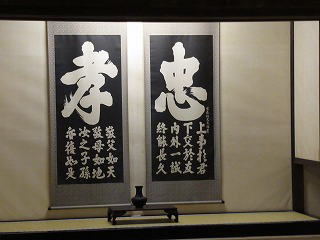 忠
上事於君
下交於友
内外一誠
終能長久
孝
敬父如天
敬母如地
汝之子孫
亦復如是